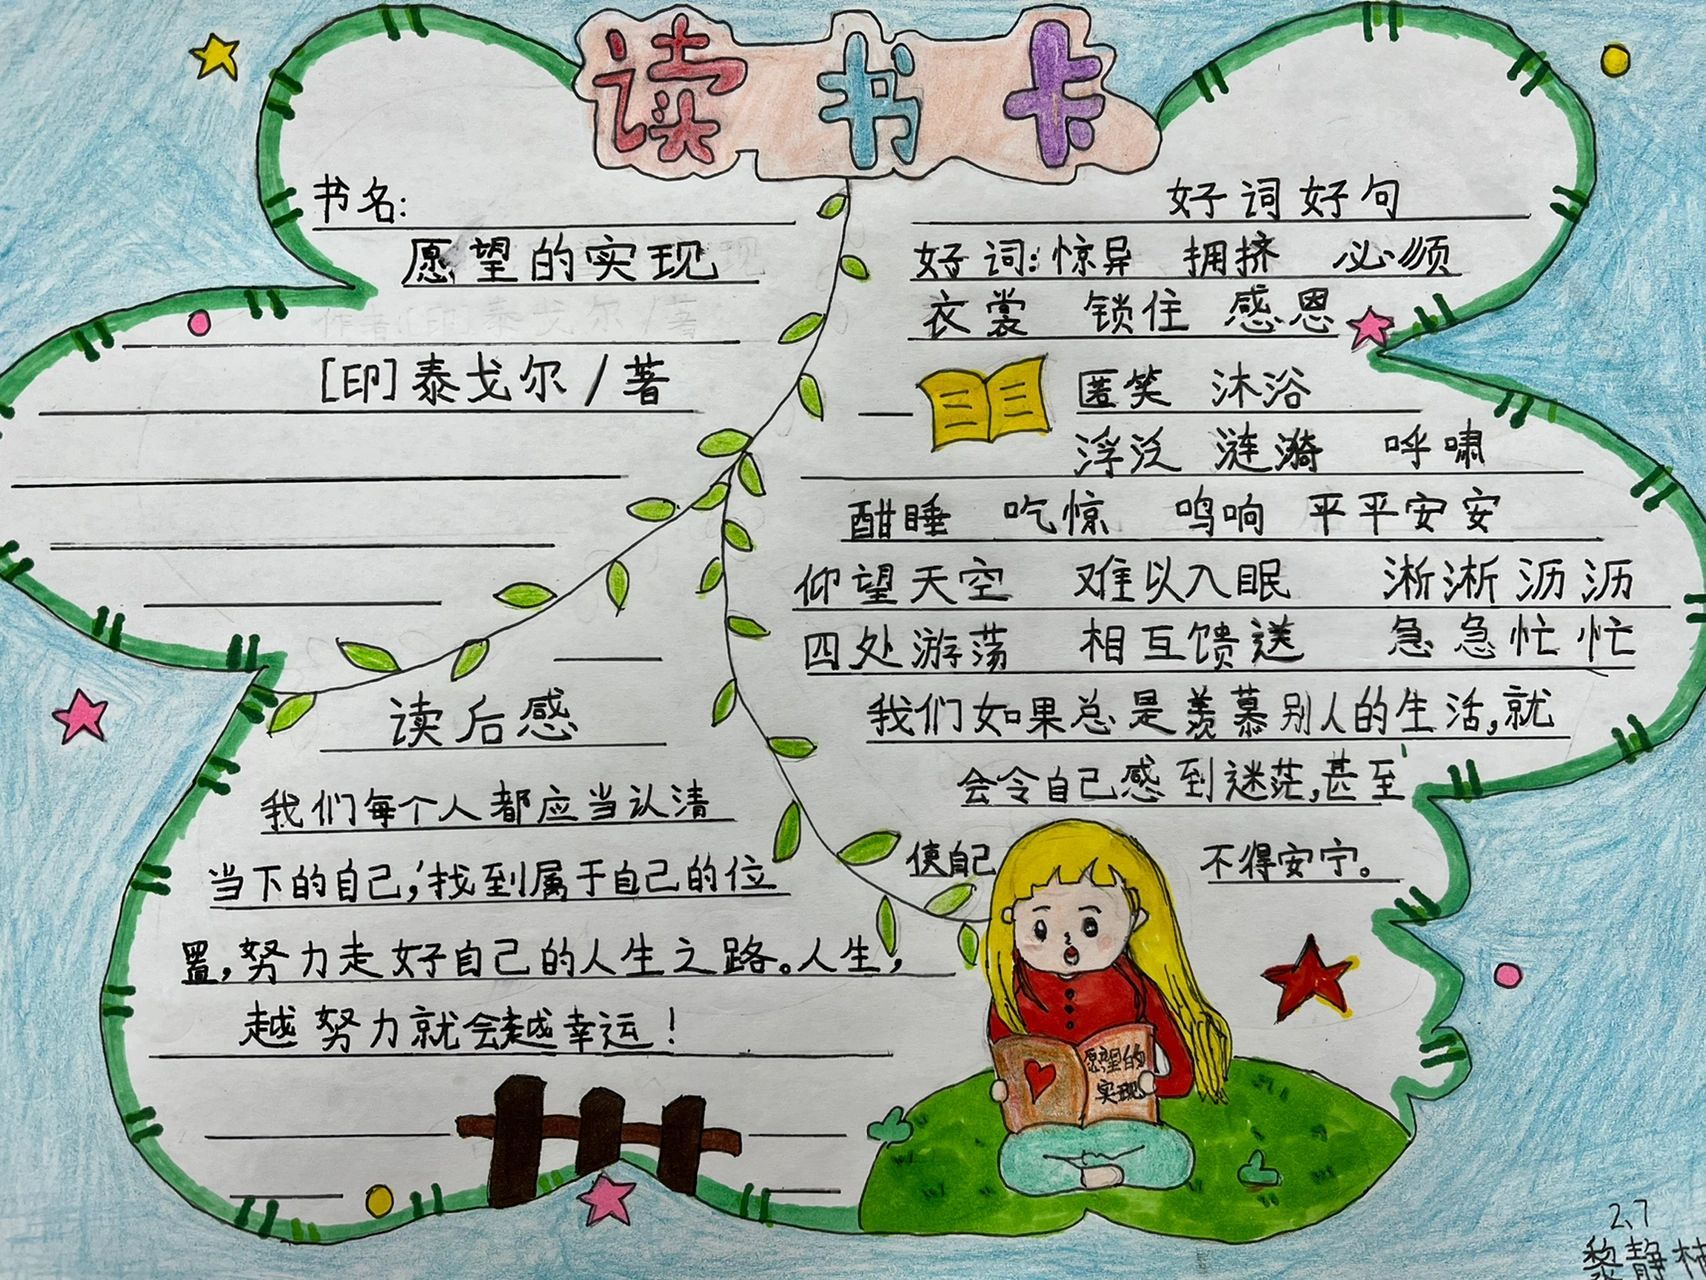 读书卡
书名:
愿望的实现
[印]泰戈尔/著
读后感
我们每个人都应当认清
当下的自己,找到属于自己的位
置,努力走好自己的人生之路。人生,
越努力就会越幸运!
好词好句
好词:惊异 拥挤 必须
衣裳 锁住 感恩
匿笑 沐浴
浮泛 涟漪 呼啸
酣睡 吃惊 鸣响 平平安安
仰望天空 难以入眠 淅淅沥沥
四处游荡 相互馈送 急急忙忙
我们如果总是羡慕别人的生活,就
会令自己感到迷茫,甚至
使自己 不得安宁。
愿望的
实现
2、7
黎静